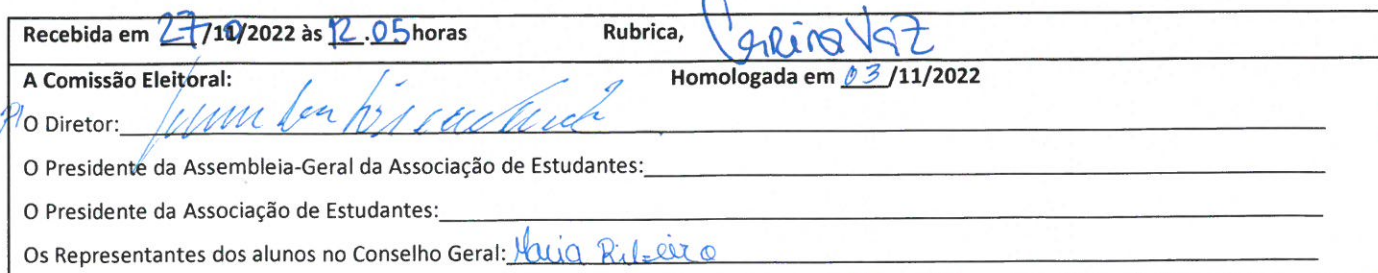 Recebida em 27/10/2022 às 12.05 horas Rubrica, Vaz
A Comissão Eleitoral: Homologada em 03/11/2022
P/ O Diretor:
O Presidente da Assembleia-Geral da Associação de Estudantes:
O Presidente da Associação de Estudantes:
Os Representantes dos alunos no Conselho Geral: Maria Ribeiro